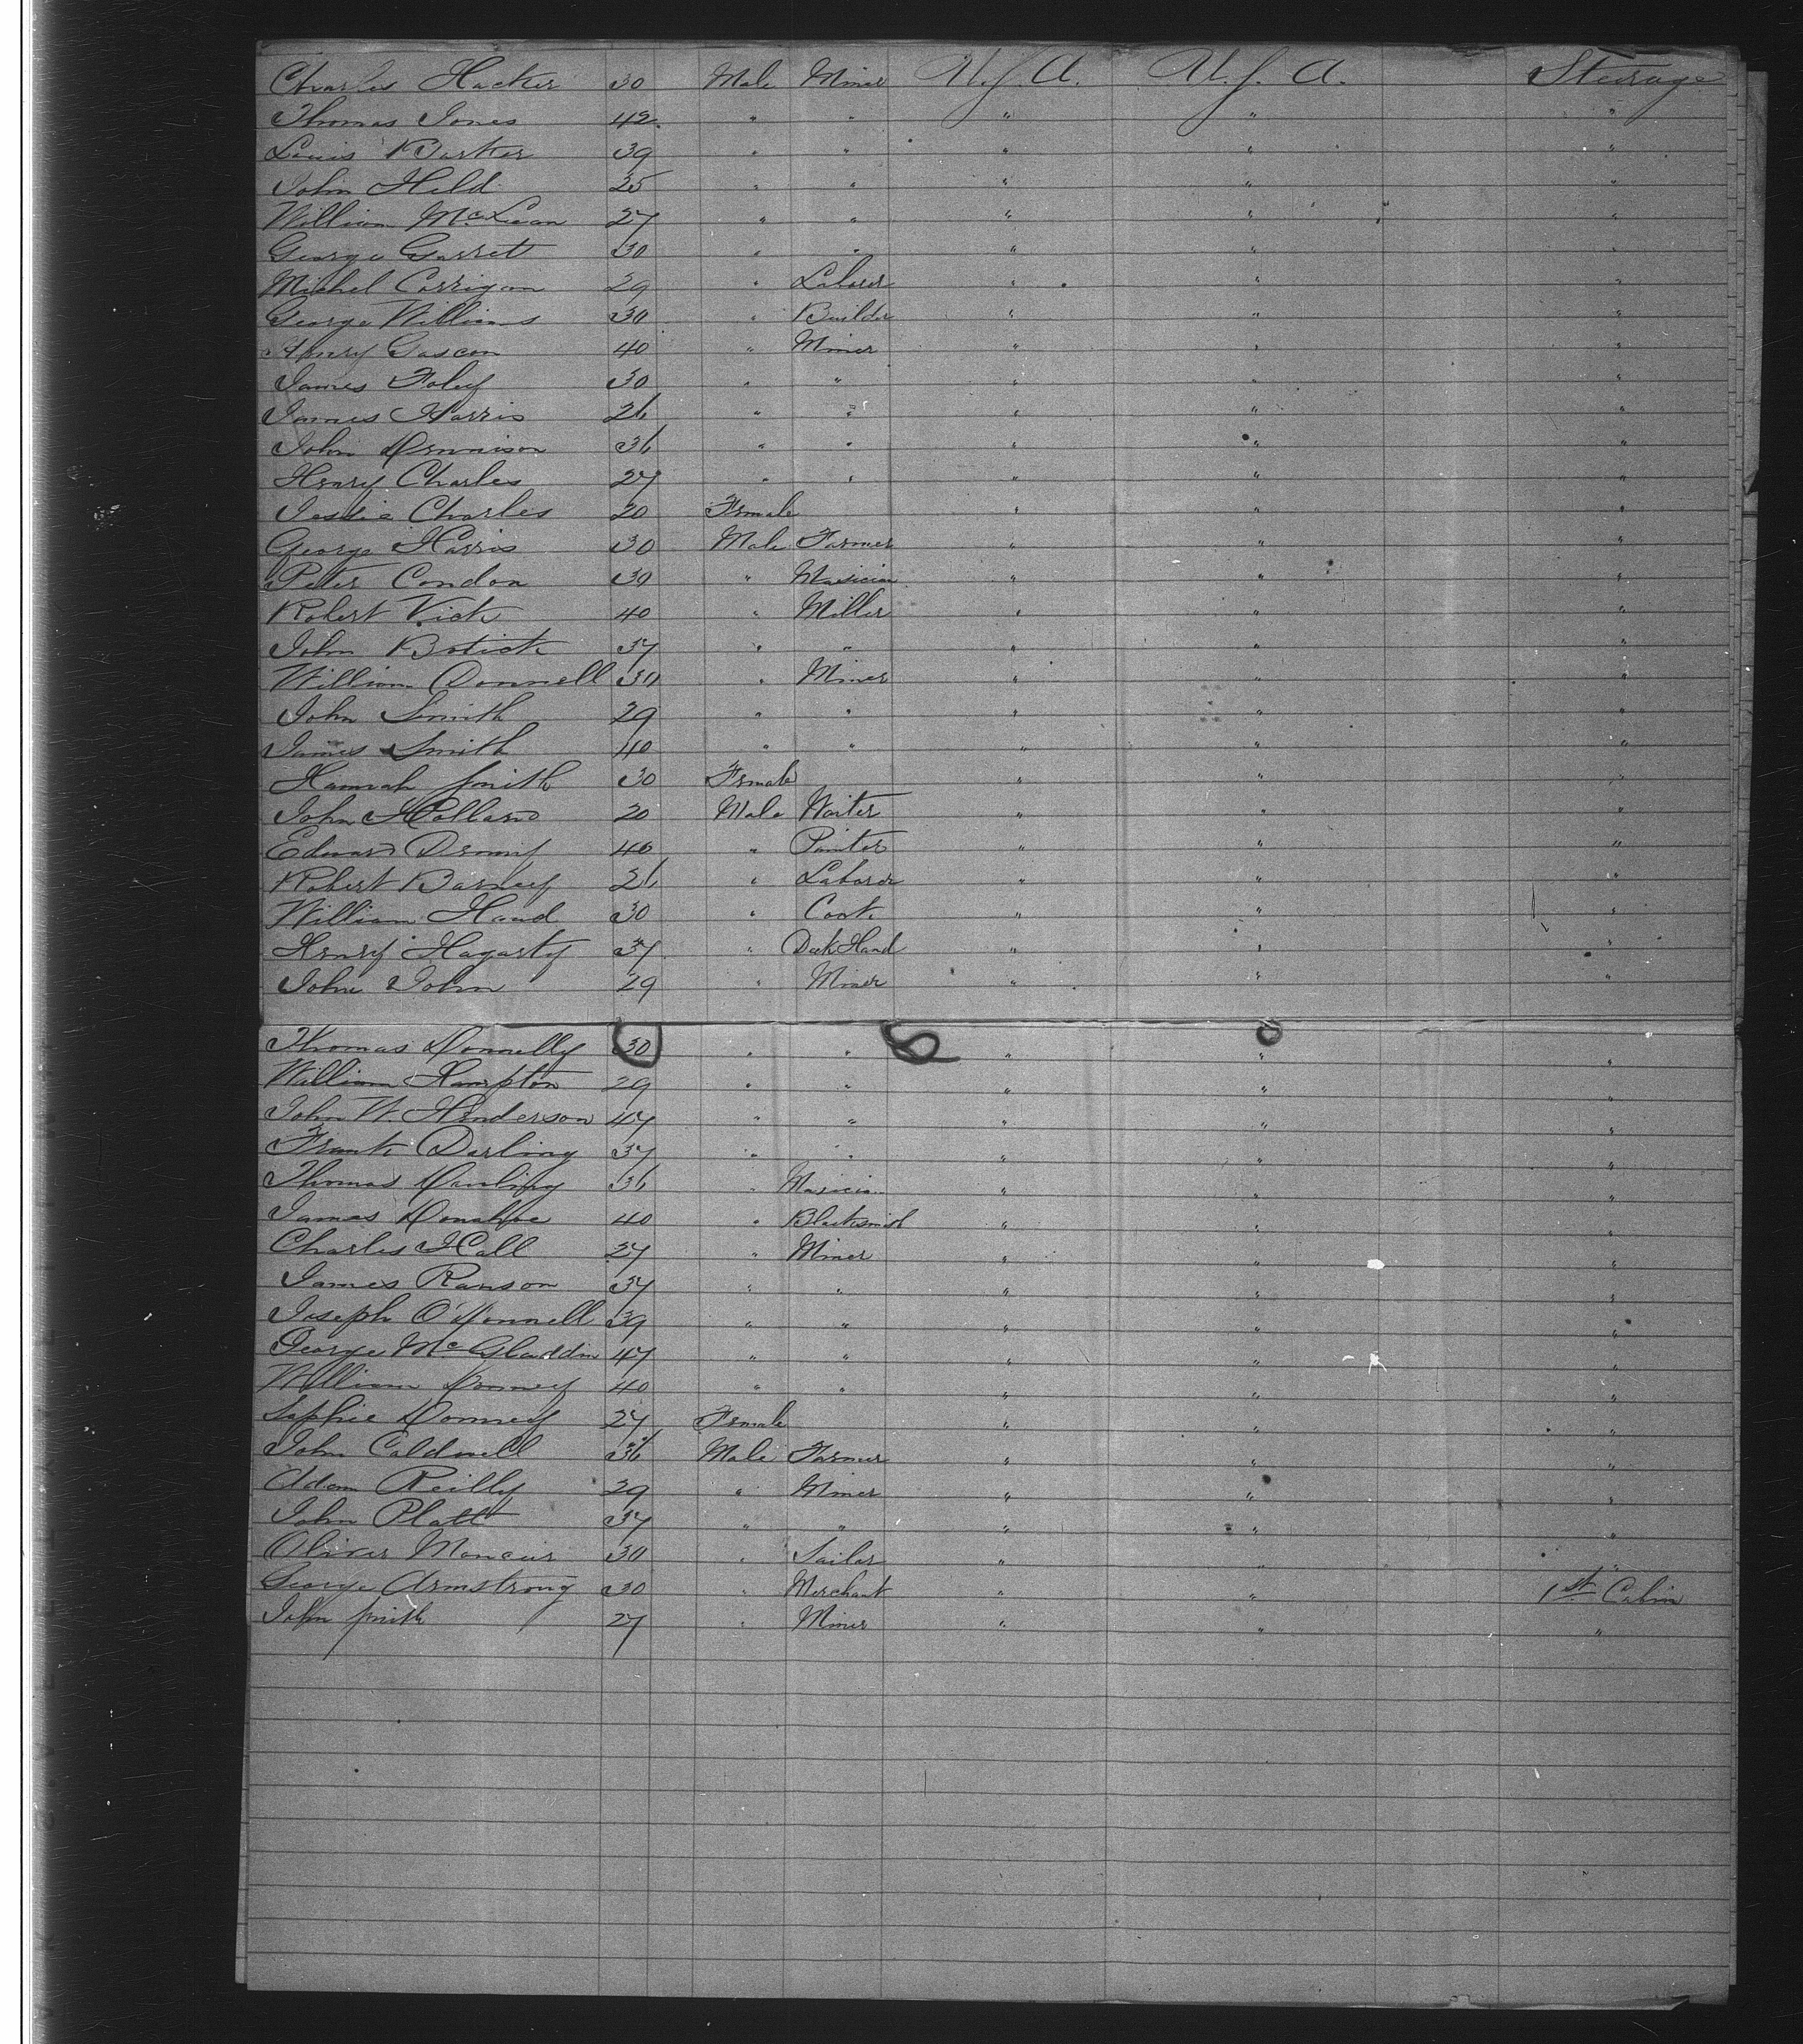 Charles Hacker 30 Male Miner U.S.A. U.S.A. Steerage
Thomas Jones 42 " " " " "
Louis Barker 39 " " " " "
John Held 25 " " " " "
William McLean 27 " " " " "
George Garret 30 " " " " "
Michel Corrigan 29 " Laborer " " "
George Williams 30 " Builder " " "
Henry Gascon 40 " Miner " " "
James Foley 30 " " " " "
James Harris 26 " " " " "
John Dennison 36 " " " " "
Henry Charles 27 " " " " "
Jessie Charles 20 Female " " "
George Harris 30 Male Farmer " " "
Peter Condon 30 " Musician " " "
Robert Vick 40 " Miller " " "
John Botick 37 " " " " "
William Donnell 30 " Miner " " "
John Smith 29 " " " " "
James Smith 40 " " " " "
Hannah Smith 30 Female " " "
John Holland 20 Male Waiter " " "
Edward 40 " Painter " " "
Robert Barney 26 " Laborer " " "
William Hand 30 " Cook " " "
Henry Hagarty 37 " Deck Hand " " "
John John 29 " Miner " " "
Thomas Donnelly 30 " " " " "
William Hampton 29 " " " " "
John W. Henderson 47 " " " " "
Frank Darling 37 " " " " "
Thomas 36 " Musician " " "
James Donahoe 40 " Blacksmith " " "
Charles Hall 27 " Miner " " "
James Ranson 37 " " " " "
Joseph O'Donnell 39 " " " " "
George McGladdin 47 " " " " "
William Donney 40 " " " " "
Sophie Donney 27 Female " " "
John Caldwell 36 Male Farmer " " "
Adam Reilly 29 " Miner " " "
John Platt 37 " " " " "
Oliver 30 " Sailor " " "
George Armstrong 30 " Merchant " " 1st Cabin
John Smith 27 " Miner " " "